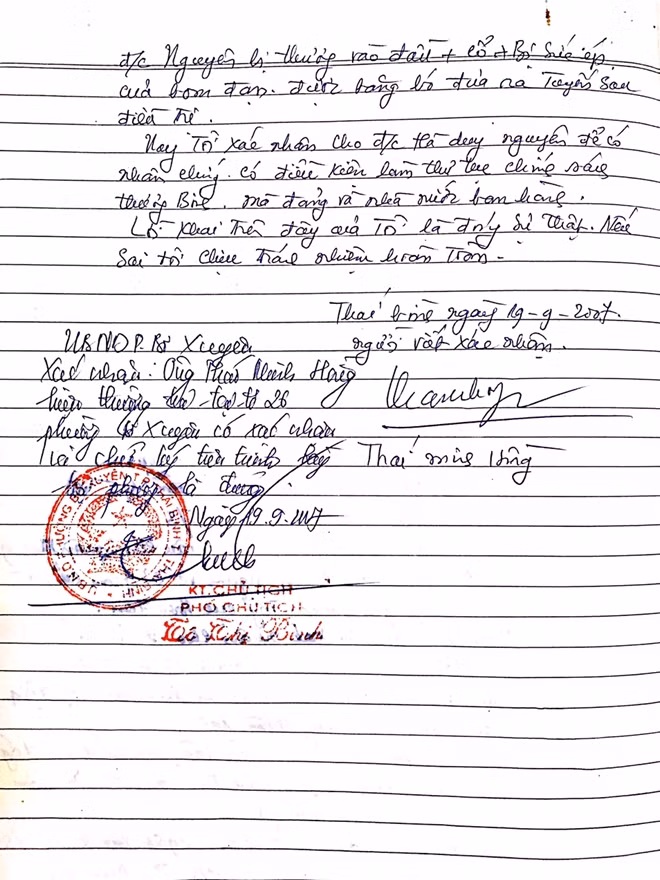 đ/c Nguyên bị thương vào đầu + cổ + Bị sức ép
của bom đạn. được băng bó đưa ra Tuyến sau
điều trị.
Nay Tôi xác nhận cho đ/c Hà duy nguyên để có
nhân chứng. có điều kiện làm thủ tục chính sách
thương Binh. mà đảng và nhà nước ban hành.
Lời khai trên đây của Tôi là đúng sự thật. Nếu
sai tôi chịu trách nhiệm hoàn toàn.
Thái bình ngày 19-9-2007.
UBND P. Bồ Xuyên
người viết xác nhận.
Xác nhận: Ông Thái Minh Hồng
hiện thường trú tại tổ 26
phường Bồ Xuyên có xác nhận
và chữ ký trên trình
Thái minh Hồng
là đúng
Ngày 19.9.2007
KT. CHỦ TỊCH
PHÓ CHỦ TỊCH
Tô Thị Bình